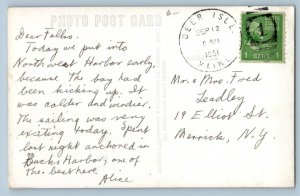 PHOTO POST CARD
DEER ISLE
SEP 12
6 AM
1951
MAINE
1 CENT 1
Dear Folks.
Today we put into
North west Harbor early,
because the bay had
been kicking up. It
was colder and windier.
The sailing was very
exciting today. Spent
last night anchored in
Bucks Harbor, one of
the best here
Alice
Mr. & Mrs. Fred
Leadley
19 Elliot St.
Merrick, N.Y.